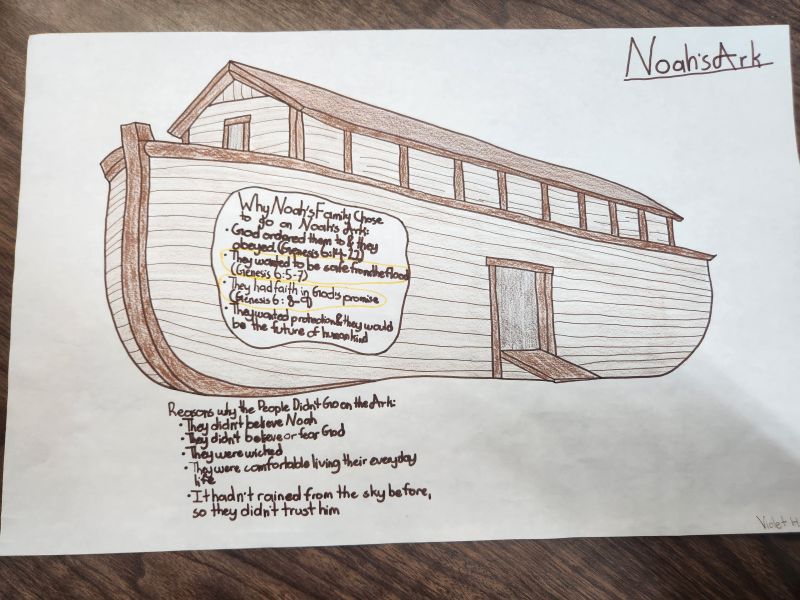 Noah's Ark
Why Noah's Family Chose
to go on Noah's Ark:
• God ordered them to & they
obeyed. (Genesis 6:14-22)
• They wanted to be safe from the flood
(Genesis 6:5-7)
• They had faith in God's promise
(Genesis 6:8-9
• They wanted protection & they would
be the future of humankind
Reasons why the People Didn't Go on the Ark:
• They didn't believe Noah
• They didn't believe or fear God
• They were wicked
• They were comfortable living their everyday
life
• It hadn't rained from the sky before,
so they didn't trust him
Violet H.